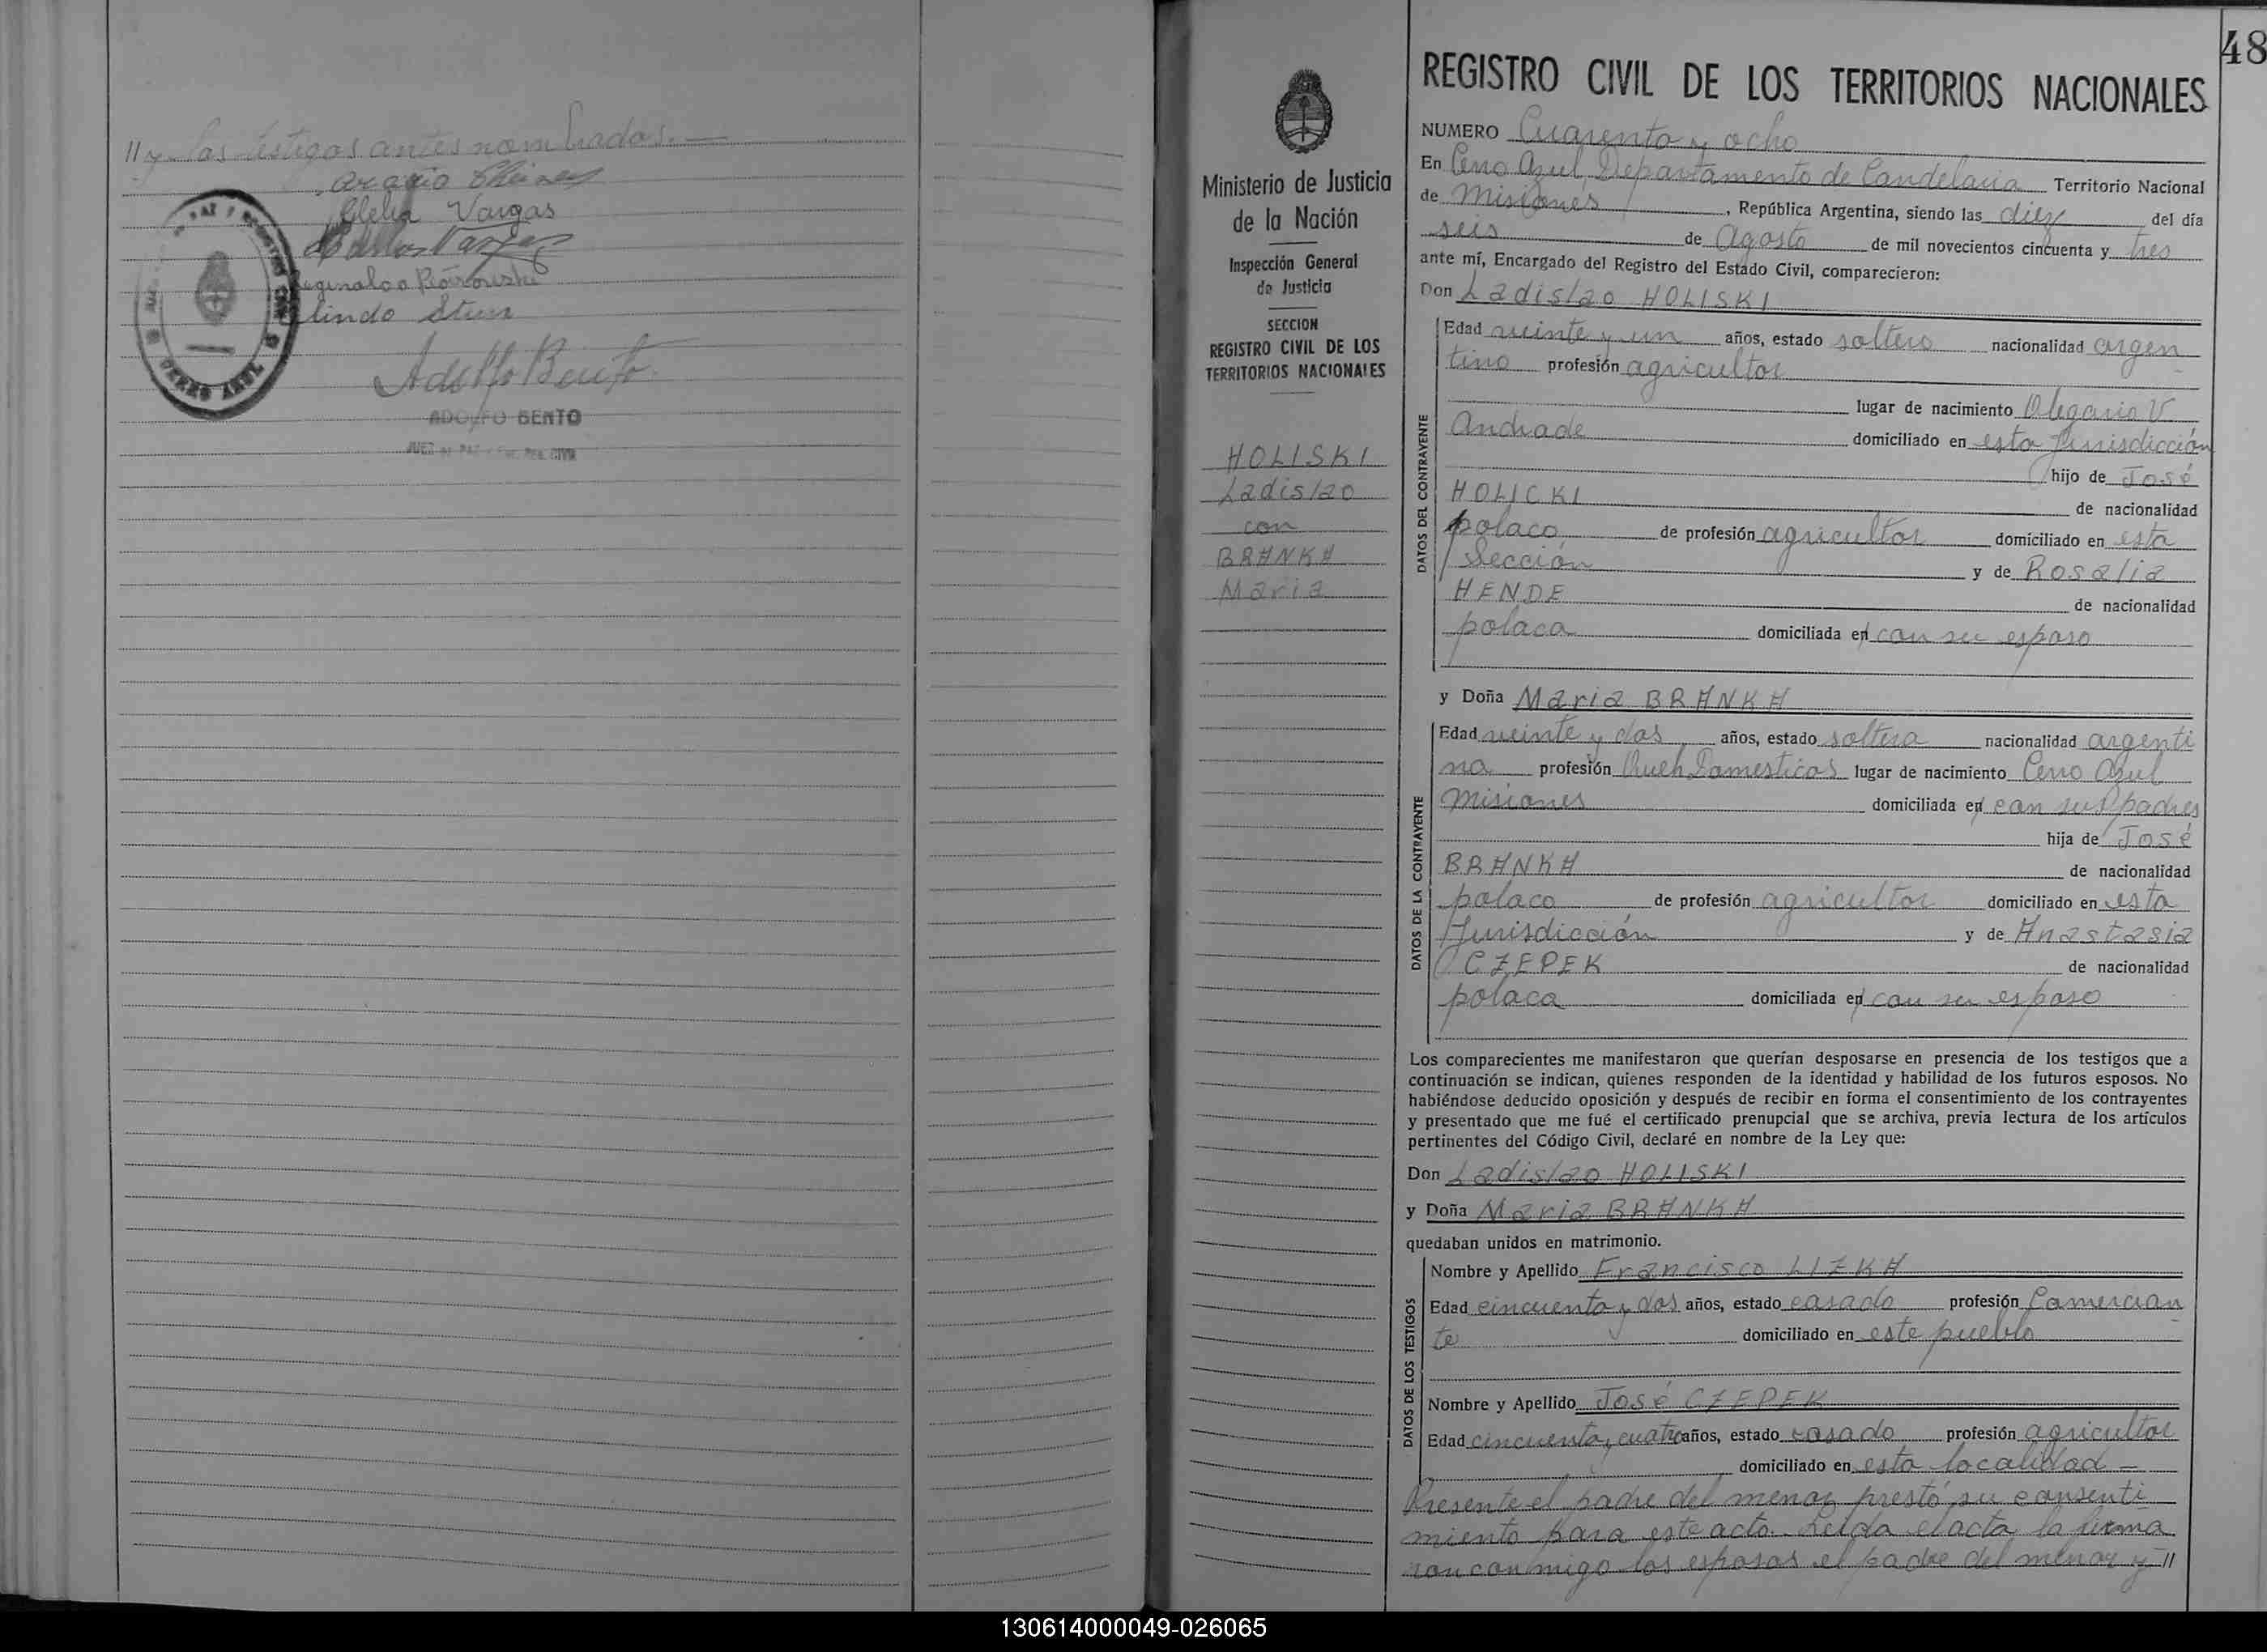 // y los testigos antes nombrados.—
Clelia Vargas
Carlos Vargas
Reginaldo
lindo
CERRO AZUL
Adolfo Bento
ADOLFO BENTO
JUEZ DE PAZ y Enc. Reg. CIVIL
48
Ministerio de Justicia
de la Nación
Inspección General
de Justicia
SECCION
REGISTRO CIVIL DE LOS
TERRITORIOS NACIONALES
HOLISKI
Ladislao
con
BRANKA
Maria
REGISTRO CIVIL DE LOS TERRITORIOS NACIONALES
NUMERO Cuarenta y ocho
En Cerro Azul, Departamento de Candelaria Territorio Nacional
de Misiones, República Argentina, siendo las diez del día
seis de Agosto de mil novecientos cincuenta y tres
ante mí, Encargado del Registro del Estado Civil, comparecieron:
Don Ladislao HOLISKI
DATOS DEL CONTRAYENTE
Edad veinte y un años, estado soltero nacionalidad argen
tino profesión agricultor
lugar de nacimiento Olegario V.
Andrade domiciliado en esta Jurisdicción
hijo de José
HOLICKI de nacionalidad
polaco de profesión agricultor domiciliado en esta
Sección y de Rosalia
HENDE de nacionalidad
polaca domiciliada en con su esposo
y Doña Maria BRANKA
DATOS DE LA CONTRAYENTE
Edad veinte y dos años, estado soltera nacionalidad argenti
na profesión Queh. Domesticos lugar de nacimiento Cerro Azul
Misiones domiciliada en con sus padres
hija de José
BRANKA de nacionalidad
polaco de profesión agricultor domiciliado en esta
Jurisdicción y de Anastasia
CZEPEK de nacionalidad
polaca domiciliada en con su esposo
Los comparecientes me manifestaron que querían desposarse en presencia de los testigos que a
continuación se indican, quienes responden de la identidad y habilidad de los futuros esposos. No
habiéndose deducido oposición y después de recibir en forma el consentimiento de los contrayentes
y presentado que me fué el certificado prenupcial que se archiva, previa lectura de los artículos
pertinentes del Código Civil, declaré en nombre de la Ley que:
Don Ladislao HOLISKI
y Doña Maria BRANKA
quedaban unidos en matrimonio.
DATOS DE LOS TESTIGOS
Nombre y Apellido Francisco LIZKA
Edad cincuenta y dos años, estado casado profesión Comercian
te domiciliado en este pueblo
Nombre y Apellido José CZEPEK
Edad cincuenta y cuatro años, estado casado profesión agricultor
domiciliado en esta localidad —
Presente el padre del menor prestó su consenti
miento para este acto. Leida el acta la firma
ron conmigo los esposos el padre del menor y //
130614000049-026065